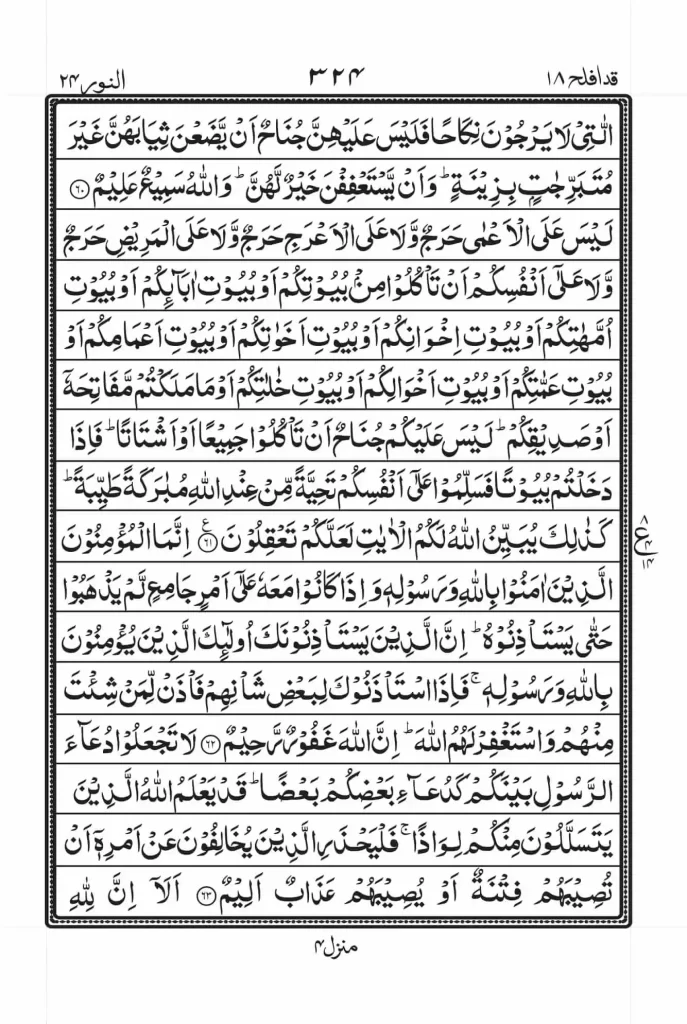 قد افلح ۱۸
۳۲۴
النور ۲۴
الّٰتِیْ لَا یَرْجُوْنَ نِكَاحًا فَلَیْسَ عَلَیْهِنَّ جُنَاحٌ اَنْ یَّضَعْنَ ثِیَابَهُنَّ غَیْرَ
مُتَبَرِّجٰتٍۭ بِزِیْنَةٍ ؕ وَ اَنْ یَّسْتَعْفِفْنَ خَیْرٌ لَّهُنَّ ؕ وَ اللّٰهُ سَمِیْعٌ عَلِیْمٌ ﴿۶۰﴾
لَیْسَ عَلَی الْاَعْمٰی حَرَجٌ وَّ لَا عَلَی الْاَعْرَجِ حَرَجٌ وَّ لَا عَلَی الْمَرِیْضِ حَرَجٌ
وَّ لَا عَلٰۤی اَنْفُسِكُمْ اَنْ تَاْكُلُوْا مِنْۢ بُیُوْتِكُمْ اَوْ بُیُوْتِ اٰبَآىِٕكُمْ اَوْ بُیُوْتِ
اُمَّهٰتِكُمْ اَوْ بُیُوْتِ اِخْوَانِكُمْ اَوْ بُیُوْتِ اَخَوٰتِكُمْ اَوْ بُیُوْتِ اَعْمَامِكُمْ اَوْ
بُیُوْتِ عَمّٰتِكُمْ اَوْ بُیُوْتِ اَخْوَالِكُمْ اَوْ بُیُوْتِ خٰلٰتِكُمْ اَوْ مَا مَلَكْتُمْ مَّفَاتِحَهٗۤ
اَوْ صَدِیْقِكُمْ ؕ لَیْسَ عَلَیْكُمْ جُنَاحٌ اَنْ تَاْكُلُوْا جَمِیْعًا اَوْ اَشْتَاتًا ؕ فَاِذَا
دَخَلْتُمْ بُیُوْتًا فَسَلِّمُوْا عَلٰۤی اَنْفُسِكُمْ تَحِیَّةً مِّنْ عِنْدِ اللّٰهِ مُبٰرَكَةً طَیِّبَةً ؕ
كَذٰلِكَ یُبَیِّنُ اللّٰهُ لَكُمُ الْاٰیٰتِ لَعَلَّكُمْ تَعْقِلُوْنَ ﴿۶۱﴾ ع اِنَّمَا الْمُؤْمِنُوْنَ
۸ ع ۴ ۱۴
الَّذِیْنَ اٰمَنُوْا بِاللّٰهِ وَ رَسُوْلِهٖ وَ اِذَا كَانُوْا مَعَهٗ عَلٰۤی اَمْرٍ جَامِعٍ لَّمْ یَذْهَبُوْا
حَتّٰی یَسْتَاْذِنُوْهُ ؕ اِنَّ الَّذِیْنَ یَسْتَاْذِنُوْنَكَ اُولٰٓىِٕكَ الَّذِیْنَ یُؤْمِنُوْنَ
بِاللّٰهِ وَ رَسُوْلِهٖ ۚ فَاِذَا اسْتَاْذَنُوْكَ لِبَعْضِ شَاْنِهِمْ فَاْذَنْ لِّمَنْ شِئْتَ
مِنْهُمْ وَ اسْتَغْفِرْ لَهُمُ اللّٰهَ ؕ اِنَّ اللّٰهَ غَفُوْرٌ رَّحِیْمٌ ﴿۶۲﴾ لَا تَجْعَلُوْا دُعَآءَ
الرَّسُوْلِ بَیْنَكُمْ كَدُعَآءِ بَعْضِكُمْ بَعْضًا ؕ قَدْ یَعْلَمُ اللّٰهُ الَّذِیْنَ
یَتَسَلَّلُوْنَ مِنْكُمْ لِوَاذًا ۚ فَلْیَحْذَرِ الَّذِیْنَ یُخَالِفُوْنَ عَنْ اَمْرِهٖۤ اَنْ
تُصِیْبَهُمْ فِتْنَةٌ اَوْ یُصِیْبَهُمْ عَذَابٌ اَلِیْمٌ ﴿۶۳﴾ اَلَاۤ اِنَّ لِلّٰهِ
منزل ۴